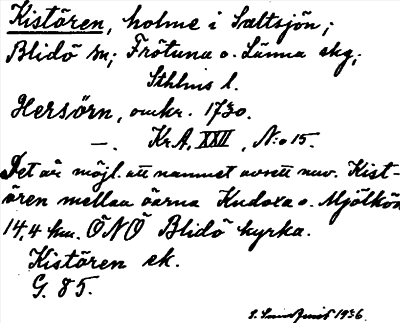 Kistören, holme i Saltsjön;
Blidö sn; Frötuna o. Länna skg;
Sthlms l.
Hersörn, omkr. 1730.
—. Kr.A, XXII, N:o 15.
Det är möjl. att namnet avsett nuv. Kist-
ören mellan öarna Kudoxa o. Mjölkön
14,4 km. ÖNÖ Blidö kyrka.
Kistören ek.
G. 85.
1936.